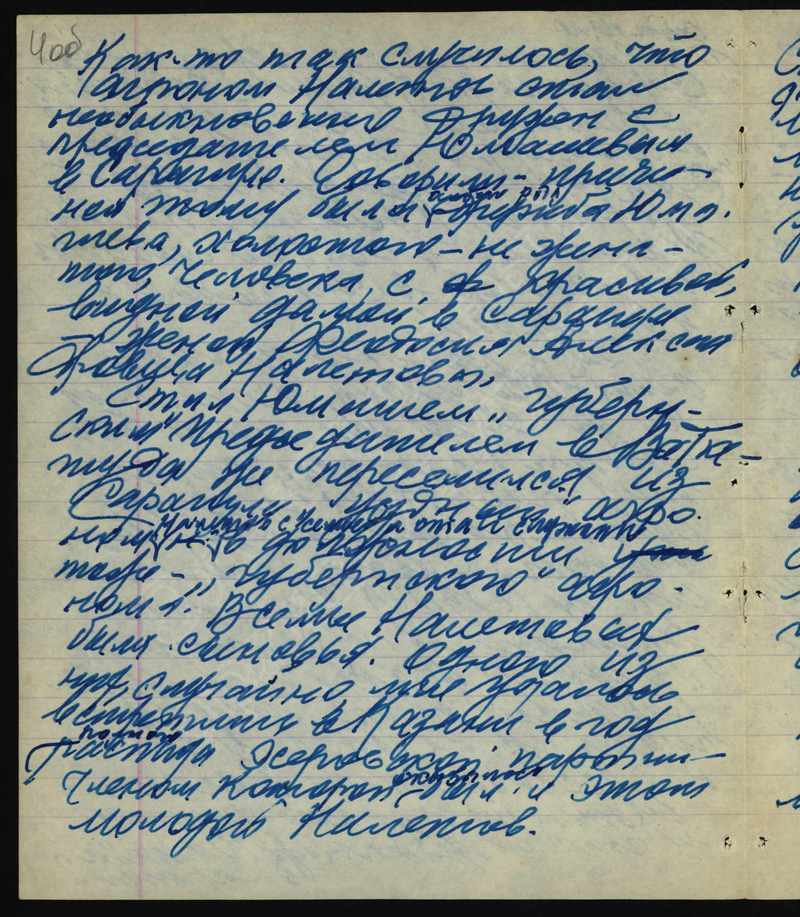 4 об
Как-то так случилось, что
агроном Налетов стал
необыкновенно дружен с
председателем Юмашевым
в Сарапуле. Говорили- причи-
ной тому была дружба Юма-
шева, холостого - не жена-
того, человека, с красивой,
видной дамой в Сарапуле
- женой Феодосия Алексан
дровича Налетова.
Стал Юмашев „губерн-
ским" председателем в Вятке-
туда же переселился из
Сарапула „уездный" агро-
ном и с семьей и стал служить
в должности
там же - „губернского" агро-
нома". В семье Налетовых
были сыновья. Одного из
них, случайно мне удалось
встретить в Казани в год
полного
распада эсеровской партии-
оказалось
членом которой - был и этот
молодой Налетов.